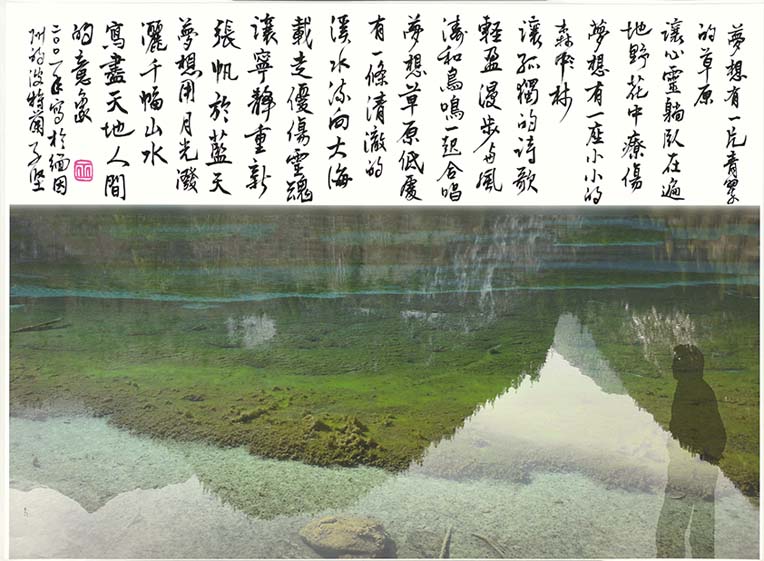 夢想有一片青翠
的草原
讓心靈躺臥在遍
地野花中療傷
夢想有一座小小的
森林
讓孤獨的詩歌
輕盈漫步与風
濤和鳥鳴一起合唱
夢想草原低處
有一條清澈的
溪水流向大海
載走優傷靈魂
讓寧靜重新
張帆於藍天
夢想用月光潑
灑千幅山水
寫盡天地人間
的意象
二〇〇一年寫於緬因
州的波特蘭 子堅